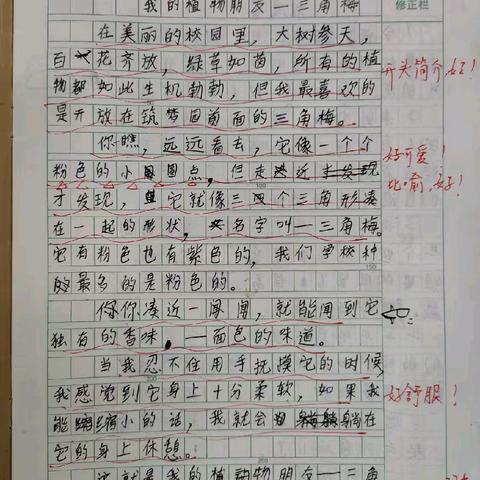 我的植物朋友—三角梅
修正栏
在美丽的校园里，大树参天，
百花齐放，绿草如茵，所有的植
物都如此生机勃勃，但我最喜欢的
是开放在筑梦园前面的三角梅。
开头简介，好！
你瞧，远远看去，它像一个个
粉色的小圆点，但走近
好可爱！
才发现，它就像三个三角形凑
比喻，好！
在一起的形状，名字叫—三角梅。
它有粉色也有紫色的，我们学校种
的最多的是粉色的。
150
你凑近一闻闻，就能闻到它
独有的香味，—面包的味道。
当我忍不住用手抚摸它的时候，
我感觉到它身上十分柔软，如果我
好舒服！
能缩小的话，我就会躺在
它的身上休憩。
这就是我的植物朋友—三角